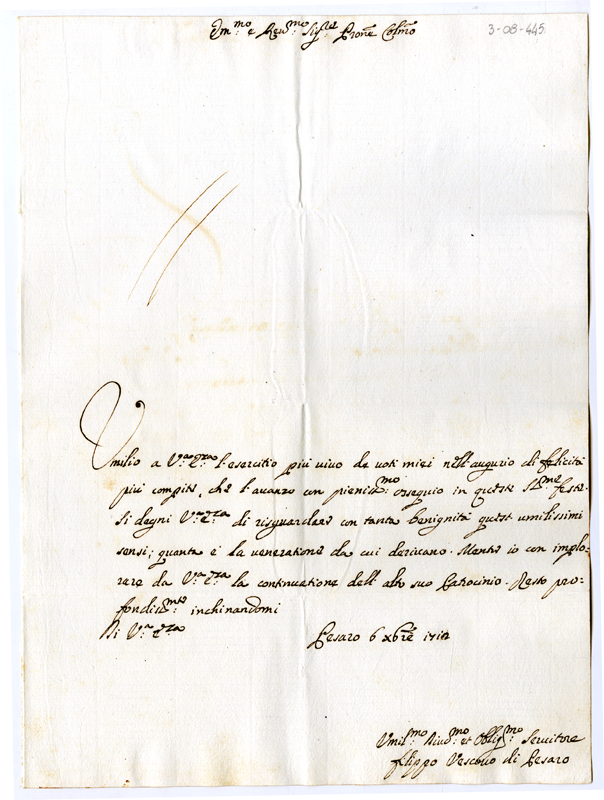 Em.mo e Rev.mo Sig.re Prone Colmo
3-08-445
Umilio a V.a E.za l'esercitio più vivo de voti miei nell'augurio di felicità
più compite, che l'avanzo con pieniss.mo ossequio in queste S.me feste.
Si degni V.a E.za di risguardare con tanta benignità questi umilissimi
sensi; quanta è la veneratione da cui derivano. Mentre io con implo-
rare da V.a E.za la continuatione dell'alto suo Patrocinio. Resto pro-
fondiss.mte inchinandomi
Di V.a E.za
Pesaro 6 xbre
Umil.mo Divd.mo et Oblig.mo Servitore
filippo Vescovo di Pesaro